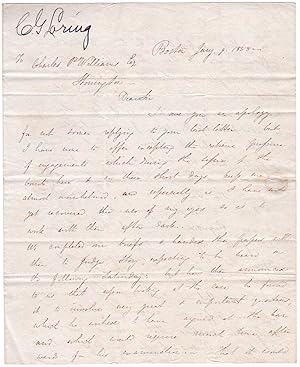 C G Loring
Boston Jany 9. 1838
To Charles P Williams Esq
Stonington
Dear Sir
I owe you an apology
for not sooner replying to your last letter. but
I have none to offer excepting the extreme pressure
of engagements which during the session of the
courts here & in these short days keeps me
almost overwhelmed, and especially as I have not
yet recovered the use of my eyes so as to
work with them after dark.
We completed our briefs & handed the papers with
them to Judge Story, expecting to be heard on
the following Saturday; but he then announced
to us that upon looking at the case he found
it to involve very great & important questions,
which he wished to have argued at the bar
and which would require much time after
ward for his examination. that it could